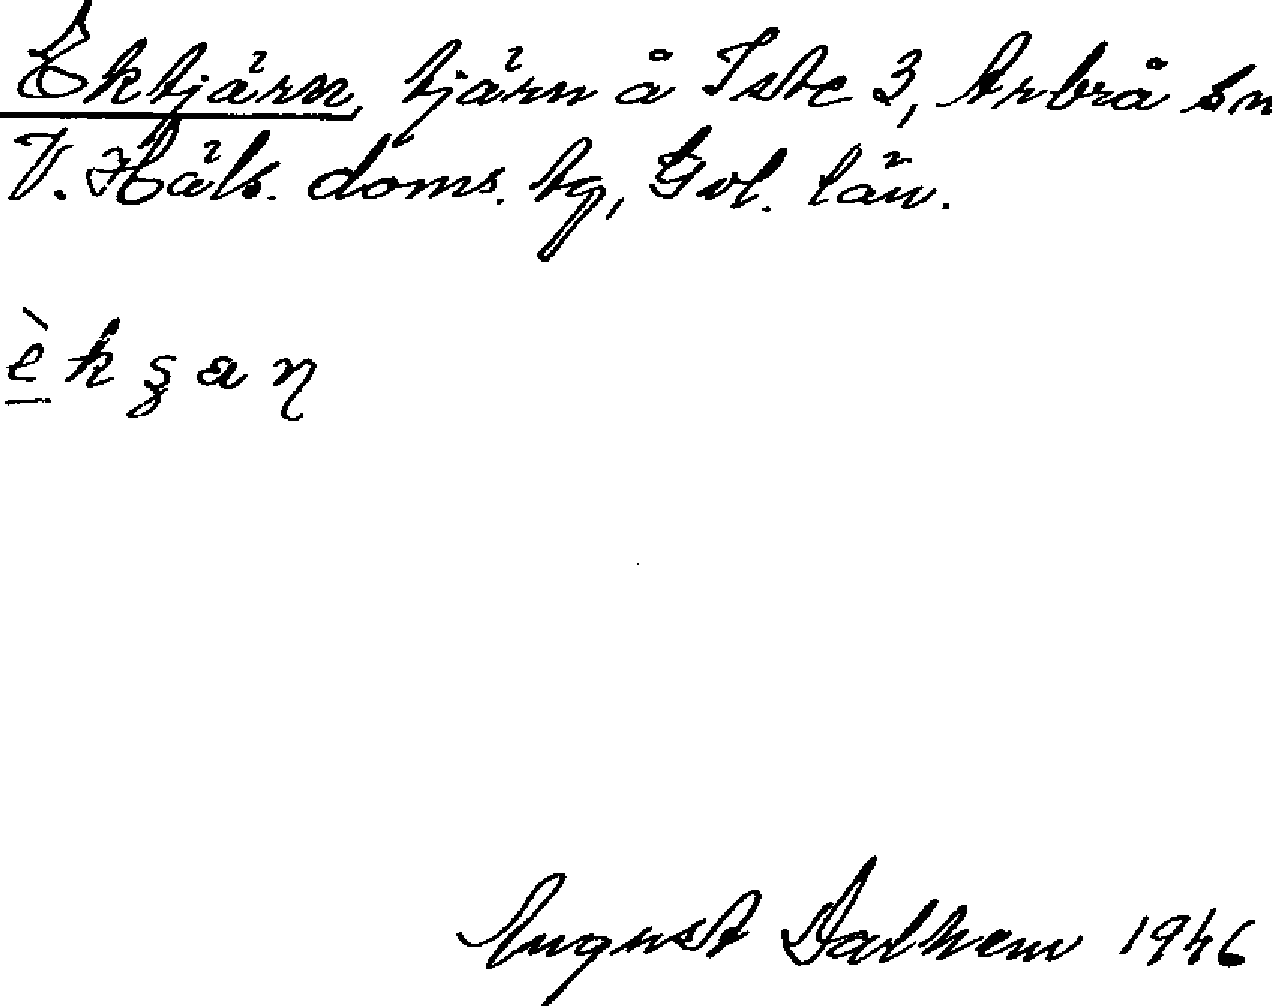 Ektjärn, tjärn å Iste 3, Arbrå sn
V. Häls. doms. tg, Gvl. län.
èkʂaɳ
August Dalhem 1946